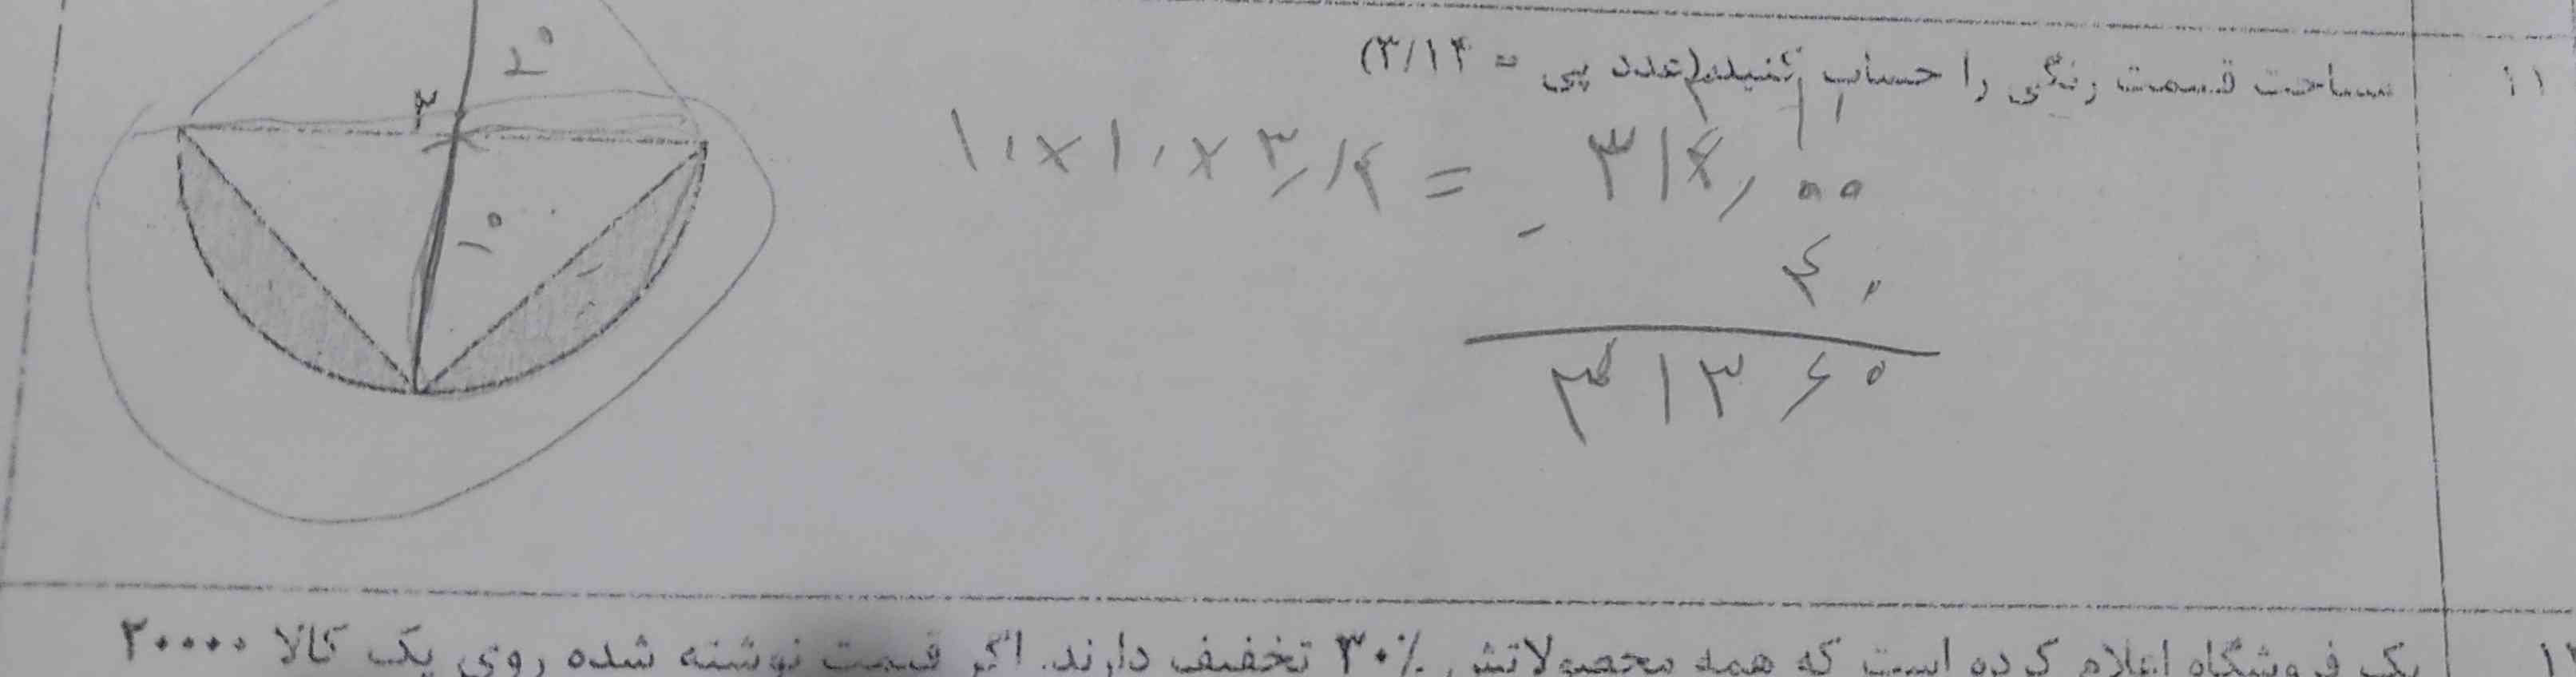 ۱۱
مساحت قسمت رنگی را حساب کنید.(عدد پی = ۳/۱۴)
۲۰
۱۰
۱۰×۱۰×۳٫۱۴ = ۳۱۴٫۰۰
- ۴۰
۳۱۳۶۰
یک فروشگاه اعلام کرده است که همه محصولاتش ۳۰٪ تخفیف دارند. اگر قیمت نوشته شده روی یک کالا ۲۰۰۰۰